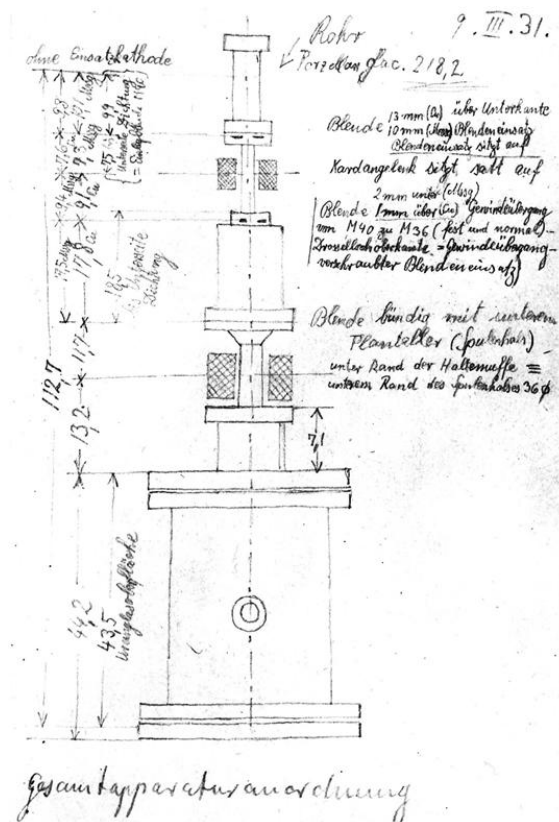 9. III. 31.
Rohr
Porzellan glac. 218,2
ohne Einsatzkathode
Blende 13 mm (Cu) über Unterkante
10 mm (Messg) Blendeneinsatz
Blendeneinsatz sitzt auf
Kardangelenk sitzt satt auf
2 mm unter (Messg)
Blende 1 mm über (Cu) Gewindeübergang
von M40 zu M36 (fest und normal) -
Drosselochoberkante = Gewindeübergang -
verschraubter Blendeneinsatz
Blende bündig mit unterem
Planteller (Spulenhals)
unter Rand der Haltemuffe =
unterem Rand des Spulenhalses 36 ø
9,8
7,6
9,4
17,5
9,1
17,8 Cu
18,5
bis Unterseite
Dichtung
11,7
13,2
112,7
7,1
44,2
43,5
Uranglasoberfläche
Gesamtapparaturanordnung